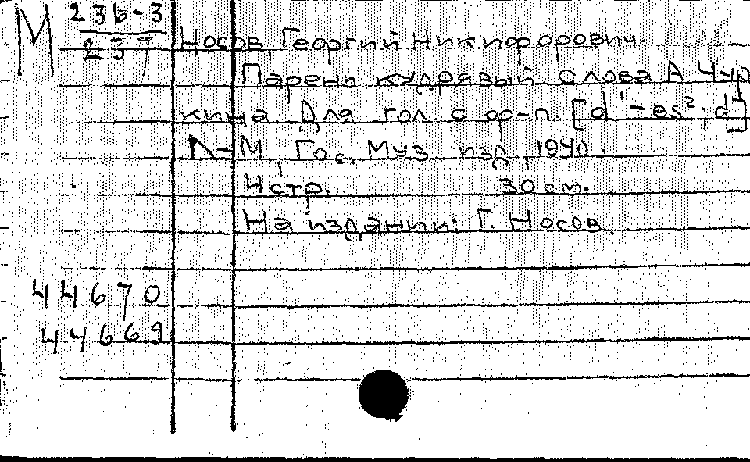 М 236-3
237
Носов Георгий Никифорович
Парень кудрявый слова А. Чур
кина Для гол. с ф-п. [d'-es²; d']
Л-М, Гос. Муз. изд, 1940.
4 стр. 30 см.
На издании: Г. Носов
44670
44669